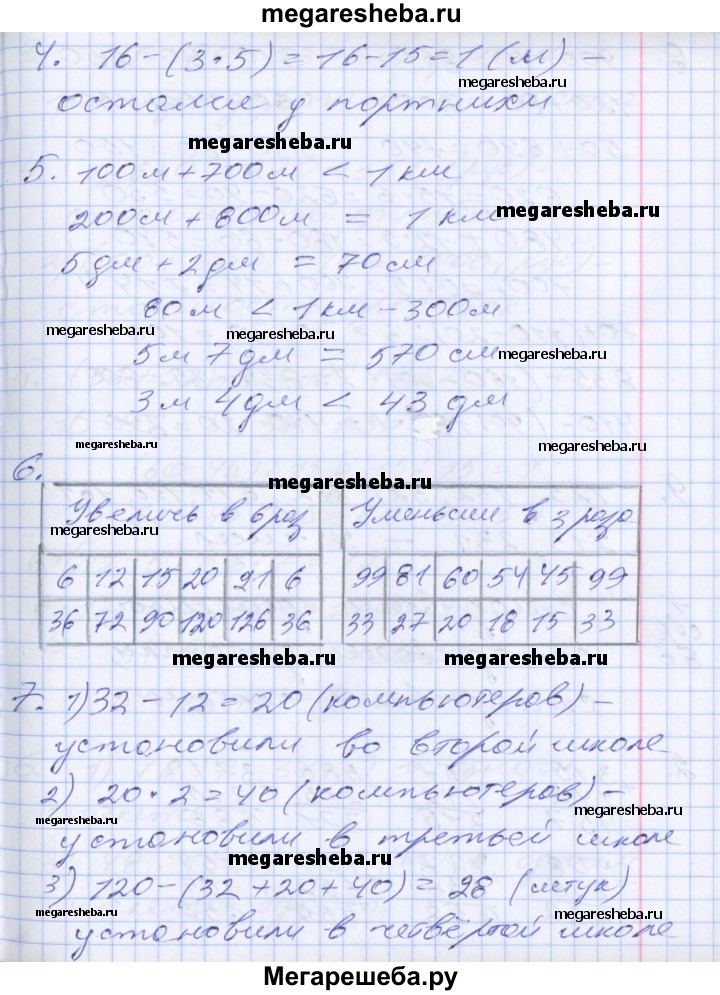 megaresheba.ru
4. 16-(3·5)=16-15=1(м) –
megaresheba.ru
остался у портнихи
megaresheba.ru
5. 100м+700м < 1км
200м+800м = 1км
megaresheba.ru
5дм+2дм = 70см
60м < 1км-300м
megaresheba.ru
5м 7дм = 570см
megaresheba.ru
3м 4дм < 43 дм
megaresheba.ru
megaresheba.ru
6.
megaresheba.ru
Увеличь в 6 раз Уменьши в 3 раза
megaresheba.ru
6 12 15 20 21 6 99 81 60 54 45 99
36 72 90 120 126 36 33 27 20 18 15 33
megaresheba.ru
megaresheba.ru
7. 1) 32-12=20 (компьютеров) –
установили во второй школе
2) 20·2=40 (компьютеров) –
megaresheba.ru
megaresheba.ru
установили в третьей школе
megaresheba.ru
3) 120-(32+20+40)=28 (штук)
megaresheba.ru
megaresheba.ru
установили в четвёртой школе
Мегарешеба.ру